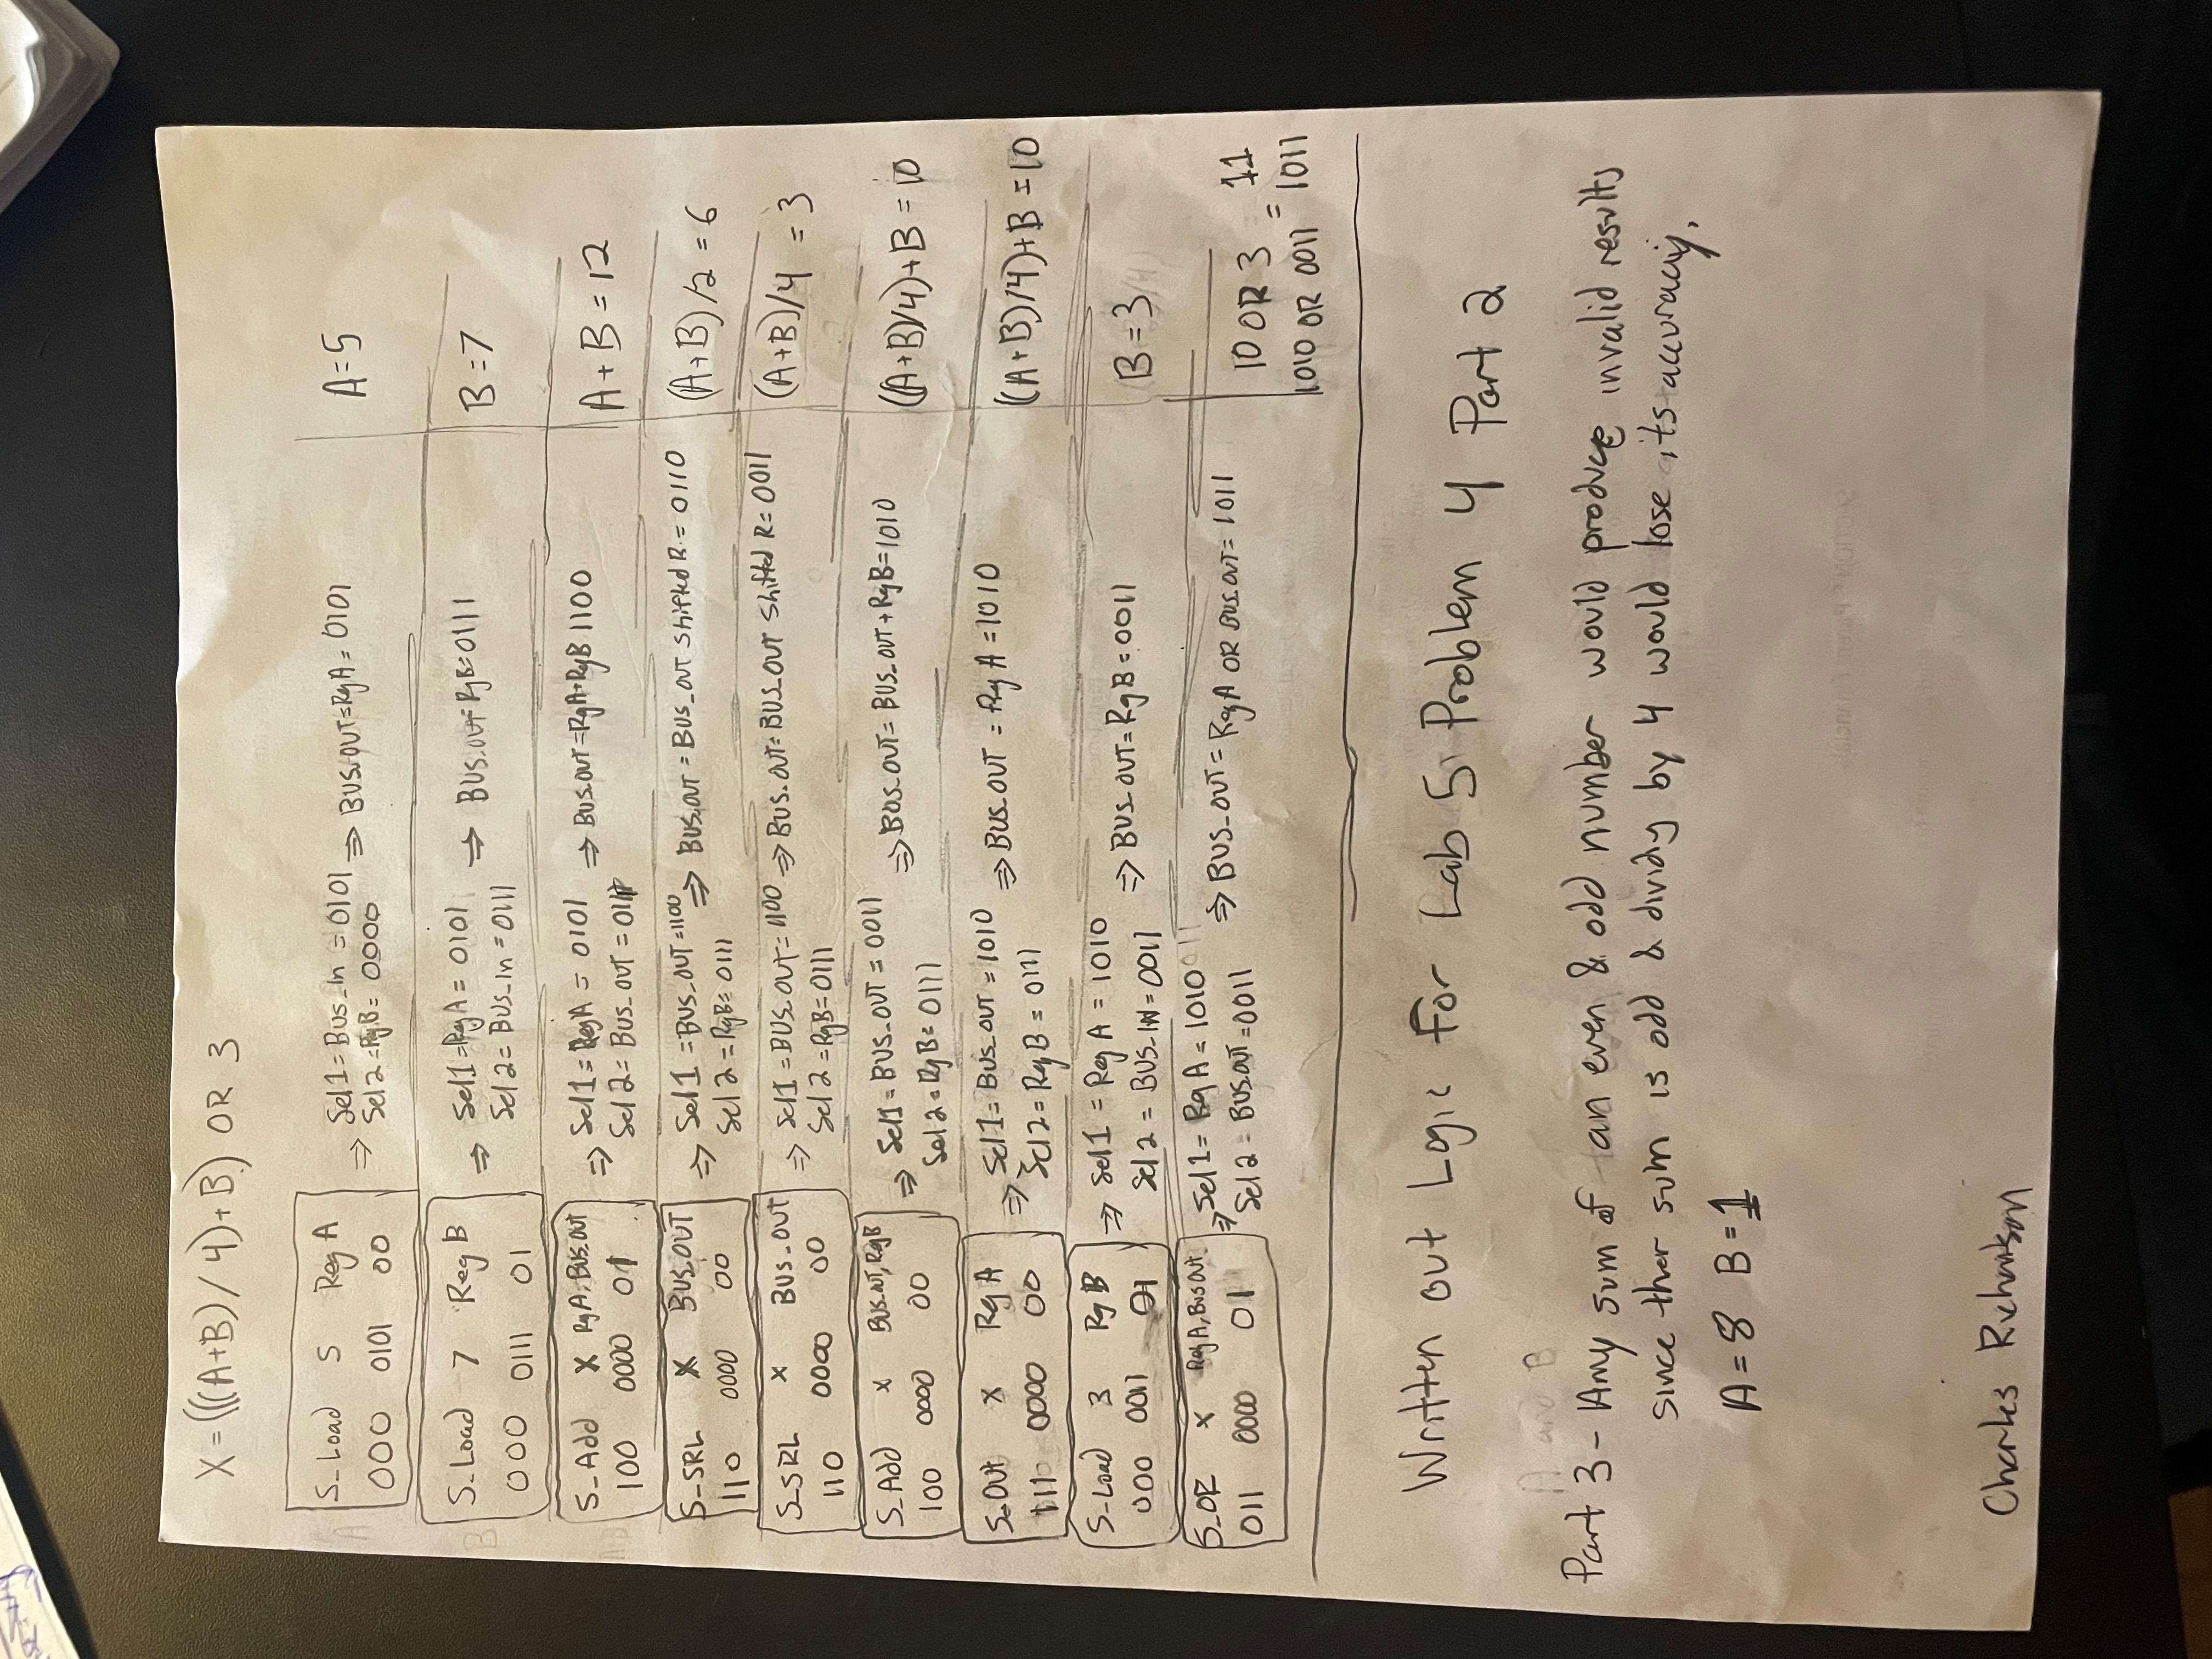 X = (((A+B) / 4) + B) OR 3
S_Load 5 Reg A
000 0101 00
⇒ Sel1 = Bus_In = 0101
Sel2 = RgB = 0000
⇒ BUS_OUT = RgA = 0101
A = 5
S_Load 7 Reg B
000 0111 01
⇒ Sel1 = RgA = 0101
Sel2 = BUS_In = 0111
⇒ BUS_OUT = RgB = 0111
B = 7
S_Add X RgA, BUS_OUT
100 0000 01
⇒ Sel1 = RegA = 0101
Sel2 = BUS_OUT = 0111
⇒ BUS_OUT = RgA+RgB 1100
A + B = 12
S_SRL X BUS_OUT
110 0000 00
⇒ Sel1 = BUS_OUT = 1100
Sel2 = RgB = 0111
⇒ BUS_OUT = BUS_OUT Shifted R = 0110
(A+B)/2 = 6
S_SRL X BUS_OUT
110 0000 00
⇒ Sel1 = BUS_OUT = 1100
Sel2 = RgB = 0111
⇒ BUS_OUT = BUS_OUT Shifted R = 0011
(A+B)/4 = 3
S_Add X BUS_OUT, RegB
100 0000 00
⇒ Sel1 = BUS_OUT = 0011
Sel2 = RgB = 0111
⇒ BUS_OUT = BUS_OUT + RgB = 1010
((A+B)/4)+B = 10
S_Out X Rg A
111 0000 00
⇒ Sel1 = BUS_OUT = 1010
Sel2 = RgB = 0111
⇒ BUS_OUT = Rg A = 1010
((A+B)/4)+B = 10
S_Load 3 Rg B
000 0011 01
⇒ Sel1 = Reg A = 1010
Sel2 = BUS_IN = 0011
⇒ BUS_OUT = RgB = 0011
B = 3
S_OR X Reg A, Bus Out
011 0000 01
⇒ Sel1 = Rg A = 1010
Sel2 = BUS_OUT = 0011
⇒ BUS_OUT = Reg A OR BUS_OUT = 1011
10 OR 3 = 11
1010 OR 0011 1011
Written out Logic For Lab 5 Problem 4 Part 2
A and B
Part 3 - Any sum of an even & odd number would produce invalid results
since ther sum is odd & dividy by 4 would lose its accuracy.
A = 8 B = 1
Charles Richardson